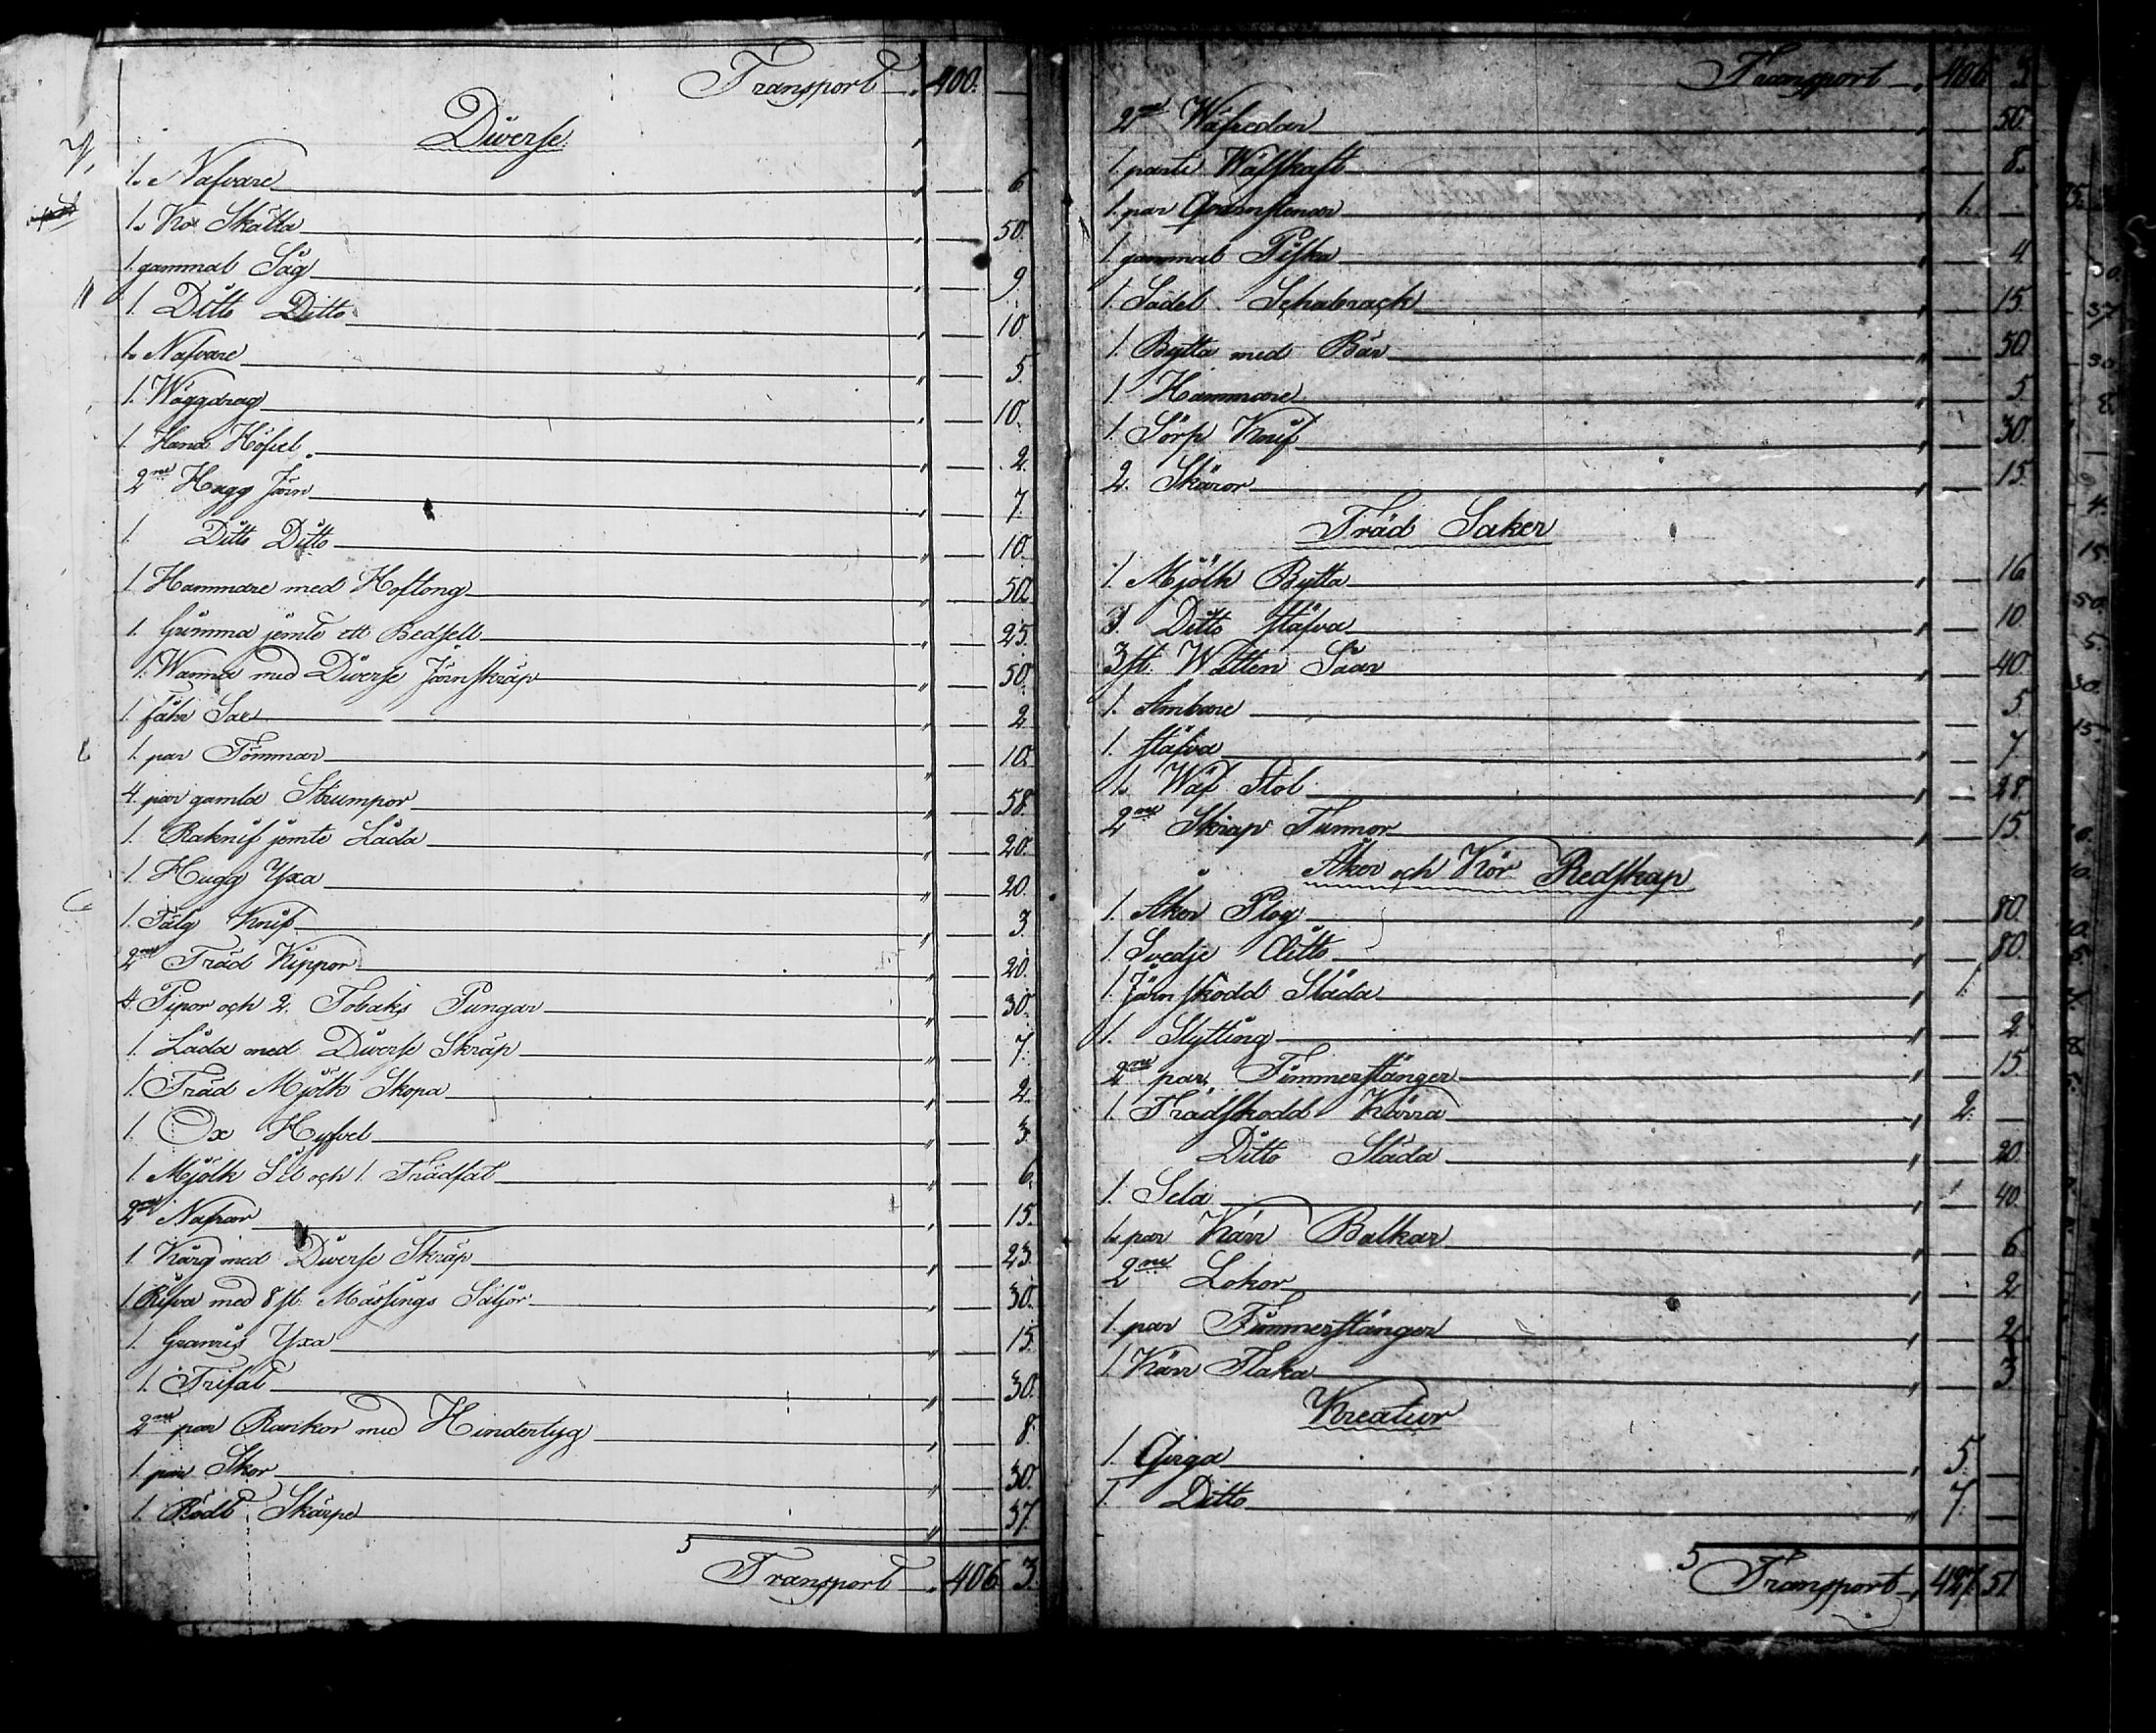 Transport 400. —
Diverse
1. Nafvare — 6
1. Ko Skälla — 50.
1. gammal Såg — 9
1. Ditto Ditto — 10
1. Nafvare — 5.
1. Väggdrag — 10.
1. Hand Höfvel — 2.
2ne Hugg Järn — 7.
1. Ditto Ditto — 10.
1. Hammare med Hoftong — 50.
1. Grimma jemte ett Bedsell — 25.
1. Wanna med Diverse Järnskräp — 50.
1. Får Sax — 2
1. par Tömmar — 10.
4. par gamla Strumpor — 58.
1. Raknif jemte Låda — 20.
1. Hugg Yxa — 20.
1. Tälg Knif — 3.
2ne Träd Kippor — 20.
4. Pipor och 2. Tobaks Pungar — 30.
1. Låda med Diverse Skräp — 7.
1. Träd Mjölk Skopa — 2.
1. Ox Hyfvel — 3.
1. Mjölk Sil och 1. Trädfat — 6.
2ne Nafrar — 15.
1. Kårg med Diverse Skräp — 23.
1. Rifva med 8 st. Mässings Söljor — 30.
1. Granris Yxa — 15.
1. Trifat — 30.
2ne par Rankor med Hindertyg — 8.
1. par Skor — 30.
1. Rödt Skärpe — 37.
5
Transport 406. 3.
Transport 406 3
2ne Wäfskedar — 50.
1. parti Wäfskaft — 8.
1. par Qvarnstenar 1. —
1. gammal Piska — 4
1. Sadel Schabrack — 15.
1. Bytta med Bär — 50
1. Hammare — 5
1. Sörp Knif — 30.
2. Skäror — 15.
Träd Saker
1. Mjölk Bytta — 16
3. Ditto stäfva — 10
3 st. Watten Såar — 40.
1. Ambare — 5
1. stäfva — 7.
1. Wäf Stol — 28.
2ne Skrap Tunnor — 15.
Åker och Kör Redskap
1. Åker Plog — 80.
1. Svedje Ditto — 80.
1. Järn skodd Släda 1. —
1. Slytting — 2
2ne par. Timmerstänger — 15.
1. Trädskodd Kärra 2. —
Ditto Släda — 20.
1. Sela — 40.
1. par Kärr Balkar — 6
2ne Lokor — 2
1. par Timmerstänger — 2
1. Kärr Flaka — 3.
Kreatur
1. Qviga 5. —
1. Ditto 7. —
5
Transport 427. 51.